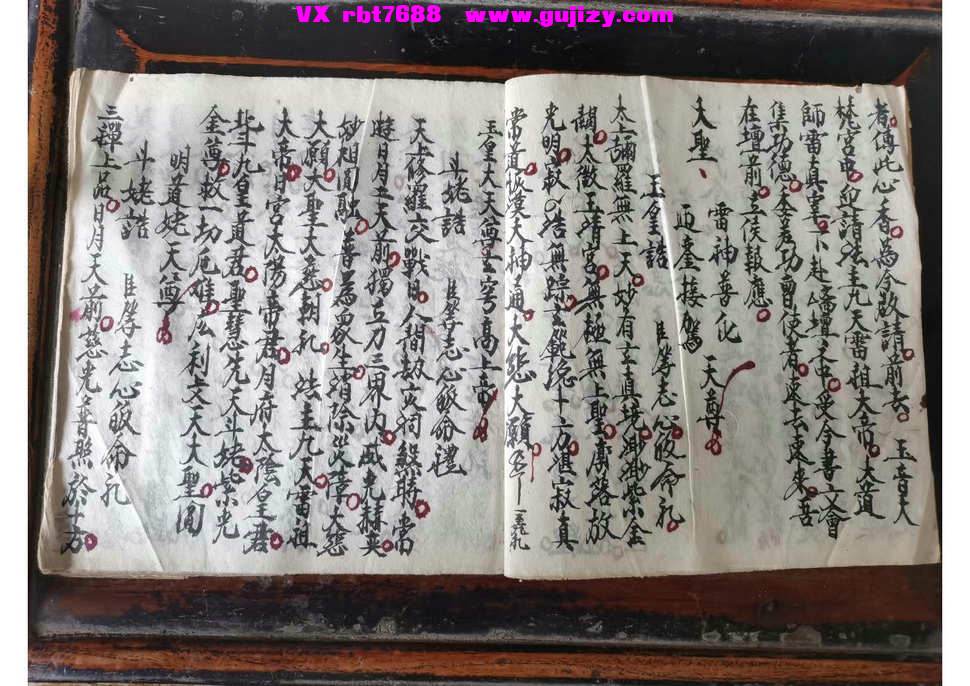 VX rbt7688 www.gujizy.com
者傳此心香爲今啟請前去 玉音大
梵宮中迎請法主九天雷祖大帝大道
師雷真宰下赴齋壇之中受今書文會
集功德圓滿功曹使者速去速來普
在壇前立俟報應
大聖 雷神普化 天尊
迎鑾接駕
玉皇誥 臣等志心皈命礼
太上彌羅無上天妙有玄真境渺渺紫金
闕太微玉清宮無極無上聖廓落放
光明寂寂浩無踪玄範總十方湛寂真
常道恢漠大神通大悲大願
玉皇大天尊玄穹高上帝
斗姥誥 臣等志心皈命禮
天大修羅交戰日人間劫灾 時常
遊日月二天前獨立刀三界內威光赫奕
妙相圓融 等爲眾生消除災障大慈
大願大聖大慈朝礼 法主九天雷祖
大帝日宮太陽帝君月府太陰皇君
北斗九皇道君聖慧先天斗姥紫光
金尊救一切厄難 法利支天大聖圓
明道姥天尊
斗姥誥 臣等志心皈命礼
三禪上品日月天前慈光普照於十方